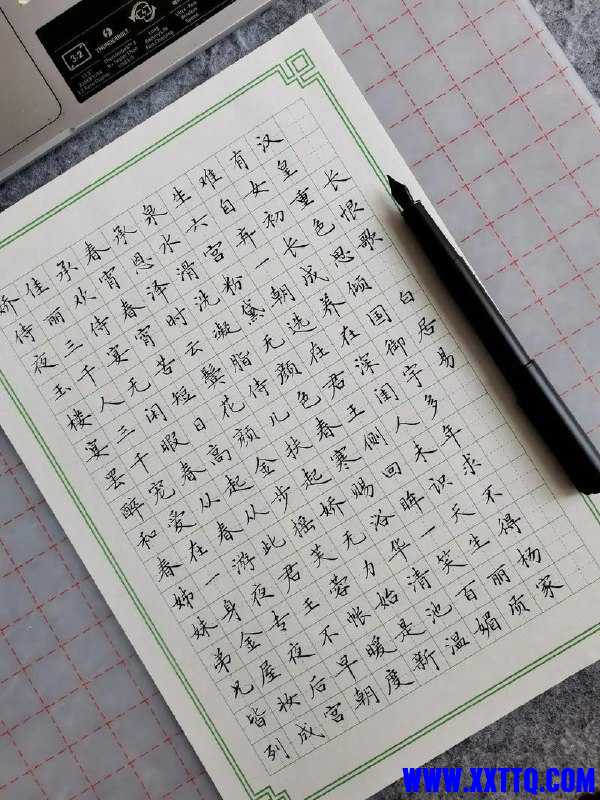 长恨歌
白居易
汉皇重色思倾国御宇多年求不得杨家
有女初长成养在深闺人未识天生丽质
难自弃一朝选在君王侧回眸一笑百媚
生六宫粉黛无颜色春寒赐浴华清池温
泉水滑洗凝脂侍儿扶起娇无力始是新
承恩泽时云鬓花颜金步摇芙蓉帐暖度
春宵春宵苦短日高起从此君王不早朝
承欢侍宴无闲暇春从春游夜专夜后宫
佳丽三千人三千宠爱在一身金屋妆成
娇侍夜玉楼宴罢醉和春姊妹弟兄皆列
3:2
THUNDERBOLT
WWW.XXTTQ.COM